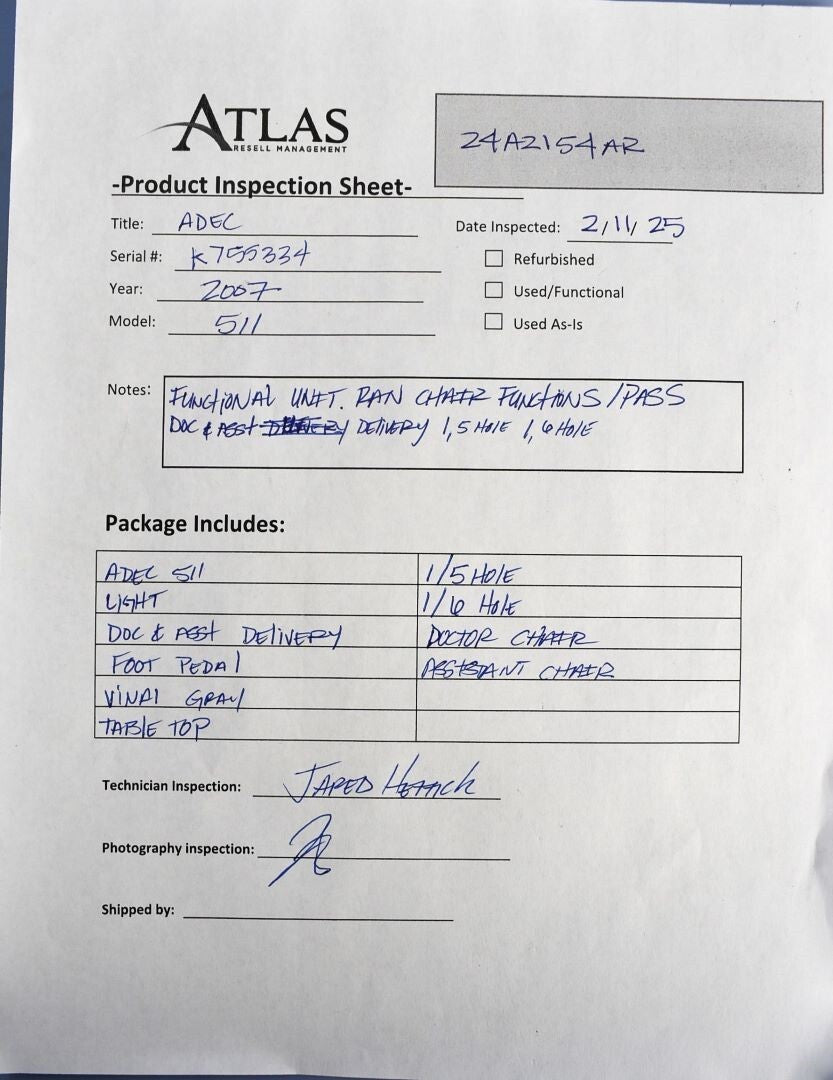 ATLAS
RESELL MANAGEMENT
24A2154AR
-Product Inspection Sheet-
Title: ADEC
Date Inspected: 2/11/25
Serial #: K755334
Refurbished
Year: 2007
Used/Functional
Model: 511
Used As-Is
Notes: FUNCTIONAL UNIT. RAN CHAIR FUNCTIONS/PASS
DOC & ASST DELIVERY 1, 5 HOLE 1, 6 HOLE
Package Includes:
ADEC 511 1/5 HOLE
LIGHT 1/6 HOLE
DOC & ASST DELIVERY DOCTOR CHAIR
FOOT PEDAL ASSISTANT CHAIR
VINAL GRAY
TABLE TOP
Technician Inspection: JARED
Photography inspection:
Shipped by: